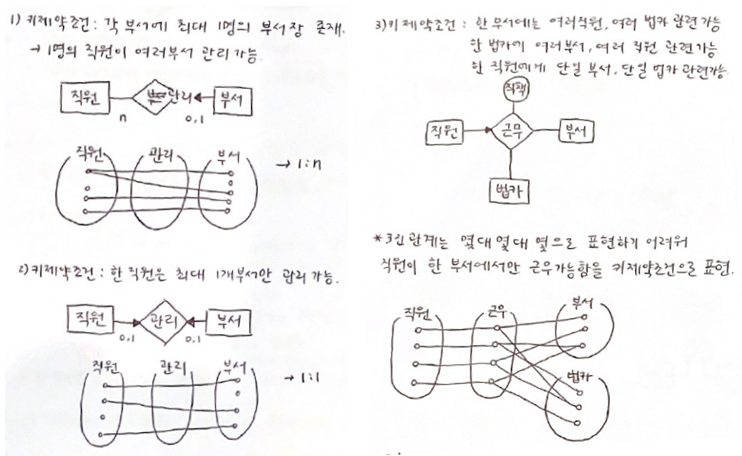 1) 키제약조건 : 각 부서에 최대 1명의 부서장 존재.
→ 1명의 직원이 여러부서 관리 가능.
직원
관리
부서
n
0,1
직원
관리
부서
→ 1:n
2) 키제약조건 : 한 직원은 최대 1개부서만 관리 가능.
직원
관리
부서
0,1
0,1
직원
관리
부서
→ 1:1
3) 키제약조건 : 한 부서에는 여러직원, 여러 법카 관련 가능
한 법카에 여러부서, 여러 직원 관련가능
한 직원에게 단일 부서, 단일 법카 관련가능
직책
직원
근무
부서
법카
*3진 관계는 몇대 몇대 몇으로 표현하기 어려워
직원이 한 부서에서만 근무가능함을 키제약조건으로 표현.
직원
근무
부서
법카